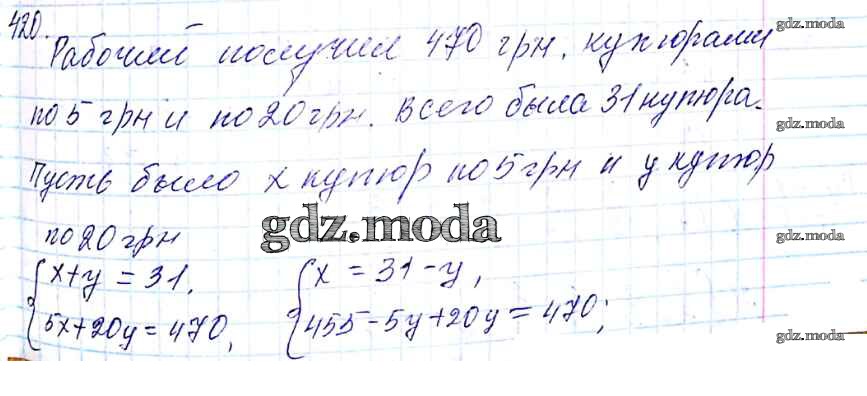 420.
Рабочий получил 470 грн. купюрами
gdz.moda
по 5 грн и по 20 грн. Всего была 31 купюра.
gdz.moda
Пусть было x купюр по 5 грн и y купюр
gdz.moda
по 20 грн
gdz.moda
gdz.moda
x+y = 31, x = 31-y,
5x+20y = 470, 455-5y+20y = 470;
gdz.moda